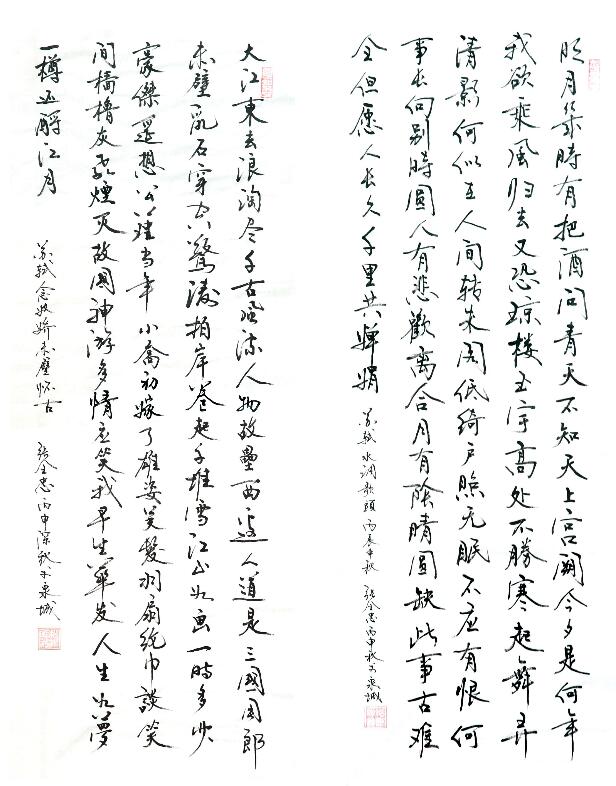 明月几時有把酒问青天不知天上宫阙今夕是何年
我欲乘风归去又恐琼楼玉宇高处不勝寒起舞弄
清影何似在人间转朱阁低绮户照无眠不应有恨何
事长向别時圆人有悲歡离合月有陰晴圆缺此事古难
全但愿人长久千里共婵娟
苏轼水调歌頭丙辰中秋 张全忠丙申秋于泉城
大江東去浪淘尽千古风流人物故壘西邊人道是三國周郎
赤壁乱石穿空驚涛拍岸卷起千堆雪江山如画一時多少
豪傑遥想公瑾当年小喬初嫁了雄姿英发羽扇纶巾談笑
间樯橹灰飞煙灭故國神游多情应笑我早生華发人生如夢
一樽还酹江月
苏轼念奴娇赤壁怀古 张全忠丙申深秋于泉城